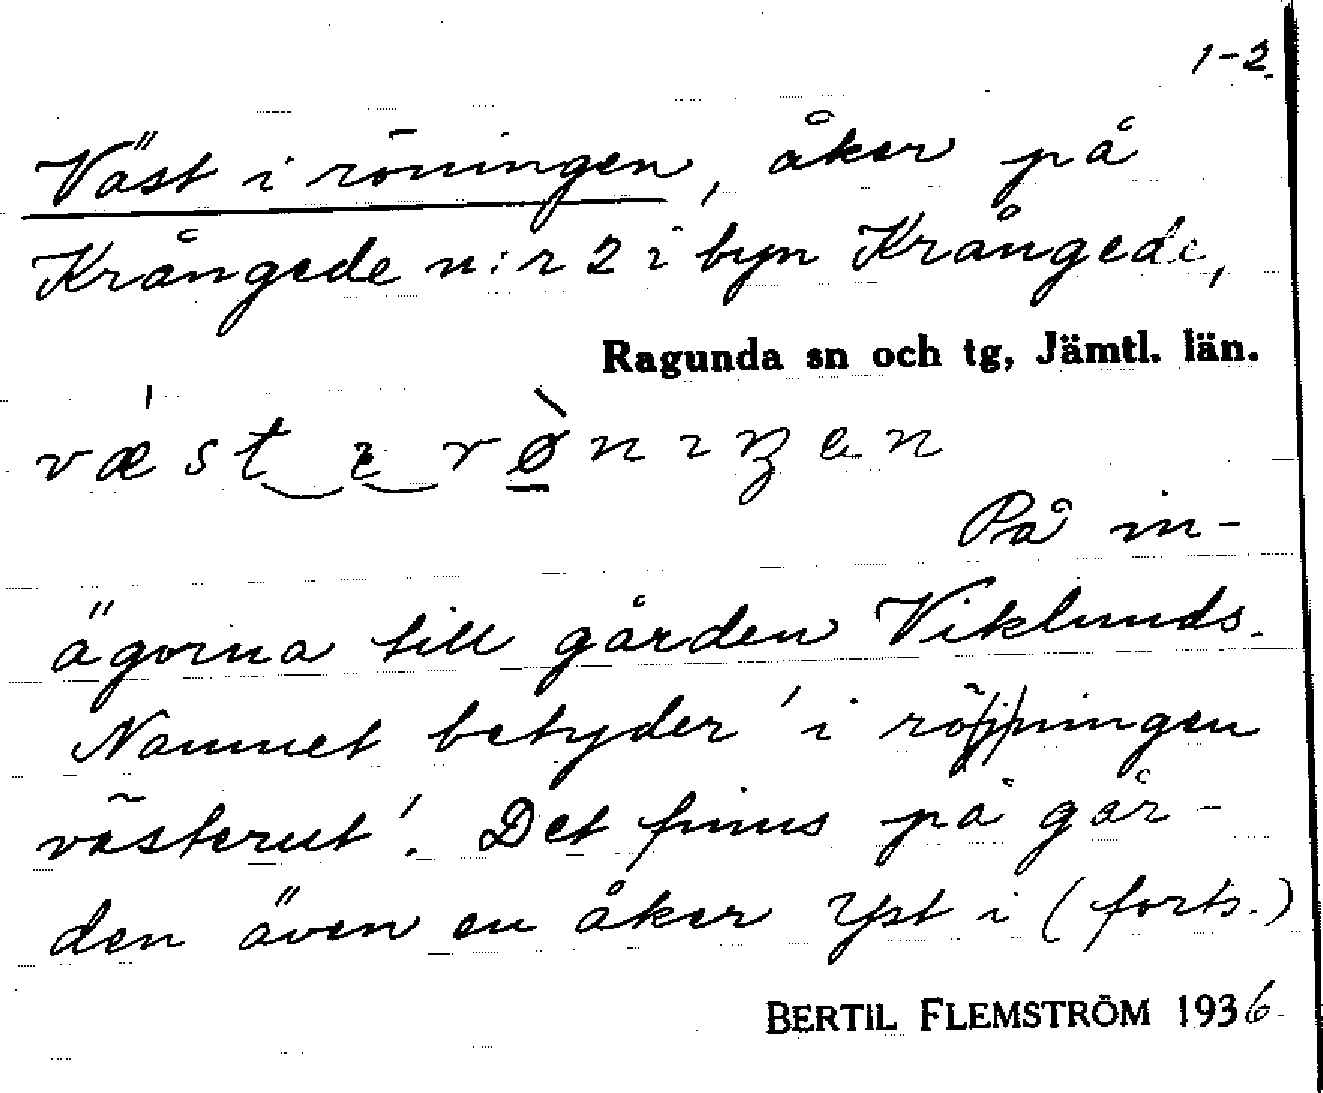 1-2
Väst i röningen, åker på
Krångede n:r 2 i byn Krångede,
Ragunda sn och tg, Jämtl. län.
væst i rønıŋen
På in-
ägorna till gården Viklunds.
Namnet betyder 'i röjningen
västerut'. Det finns på går-
den även en åker Yst i (forts.)
BERTIL FLEMSTRÖM 1936